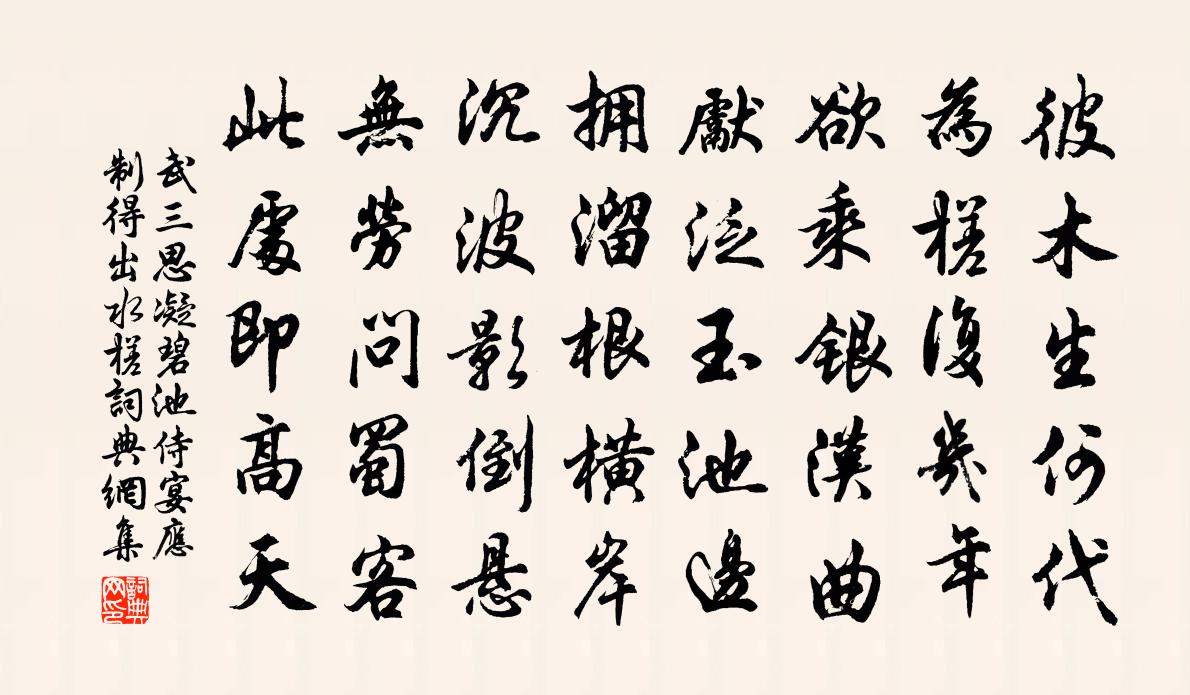 彼木生何代
為槎復幾年
欲乘銀漢曲
獻泛玉池邊
拥溜根橫岸
沉波影倒悬
無勞問蜀客
此處即高天
武三思凝碧池侍宴應
制得出水槎詞典網集
詞典
网印